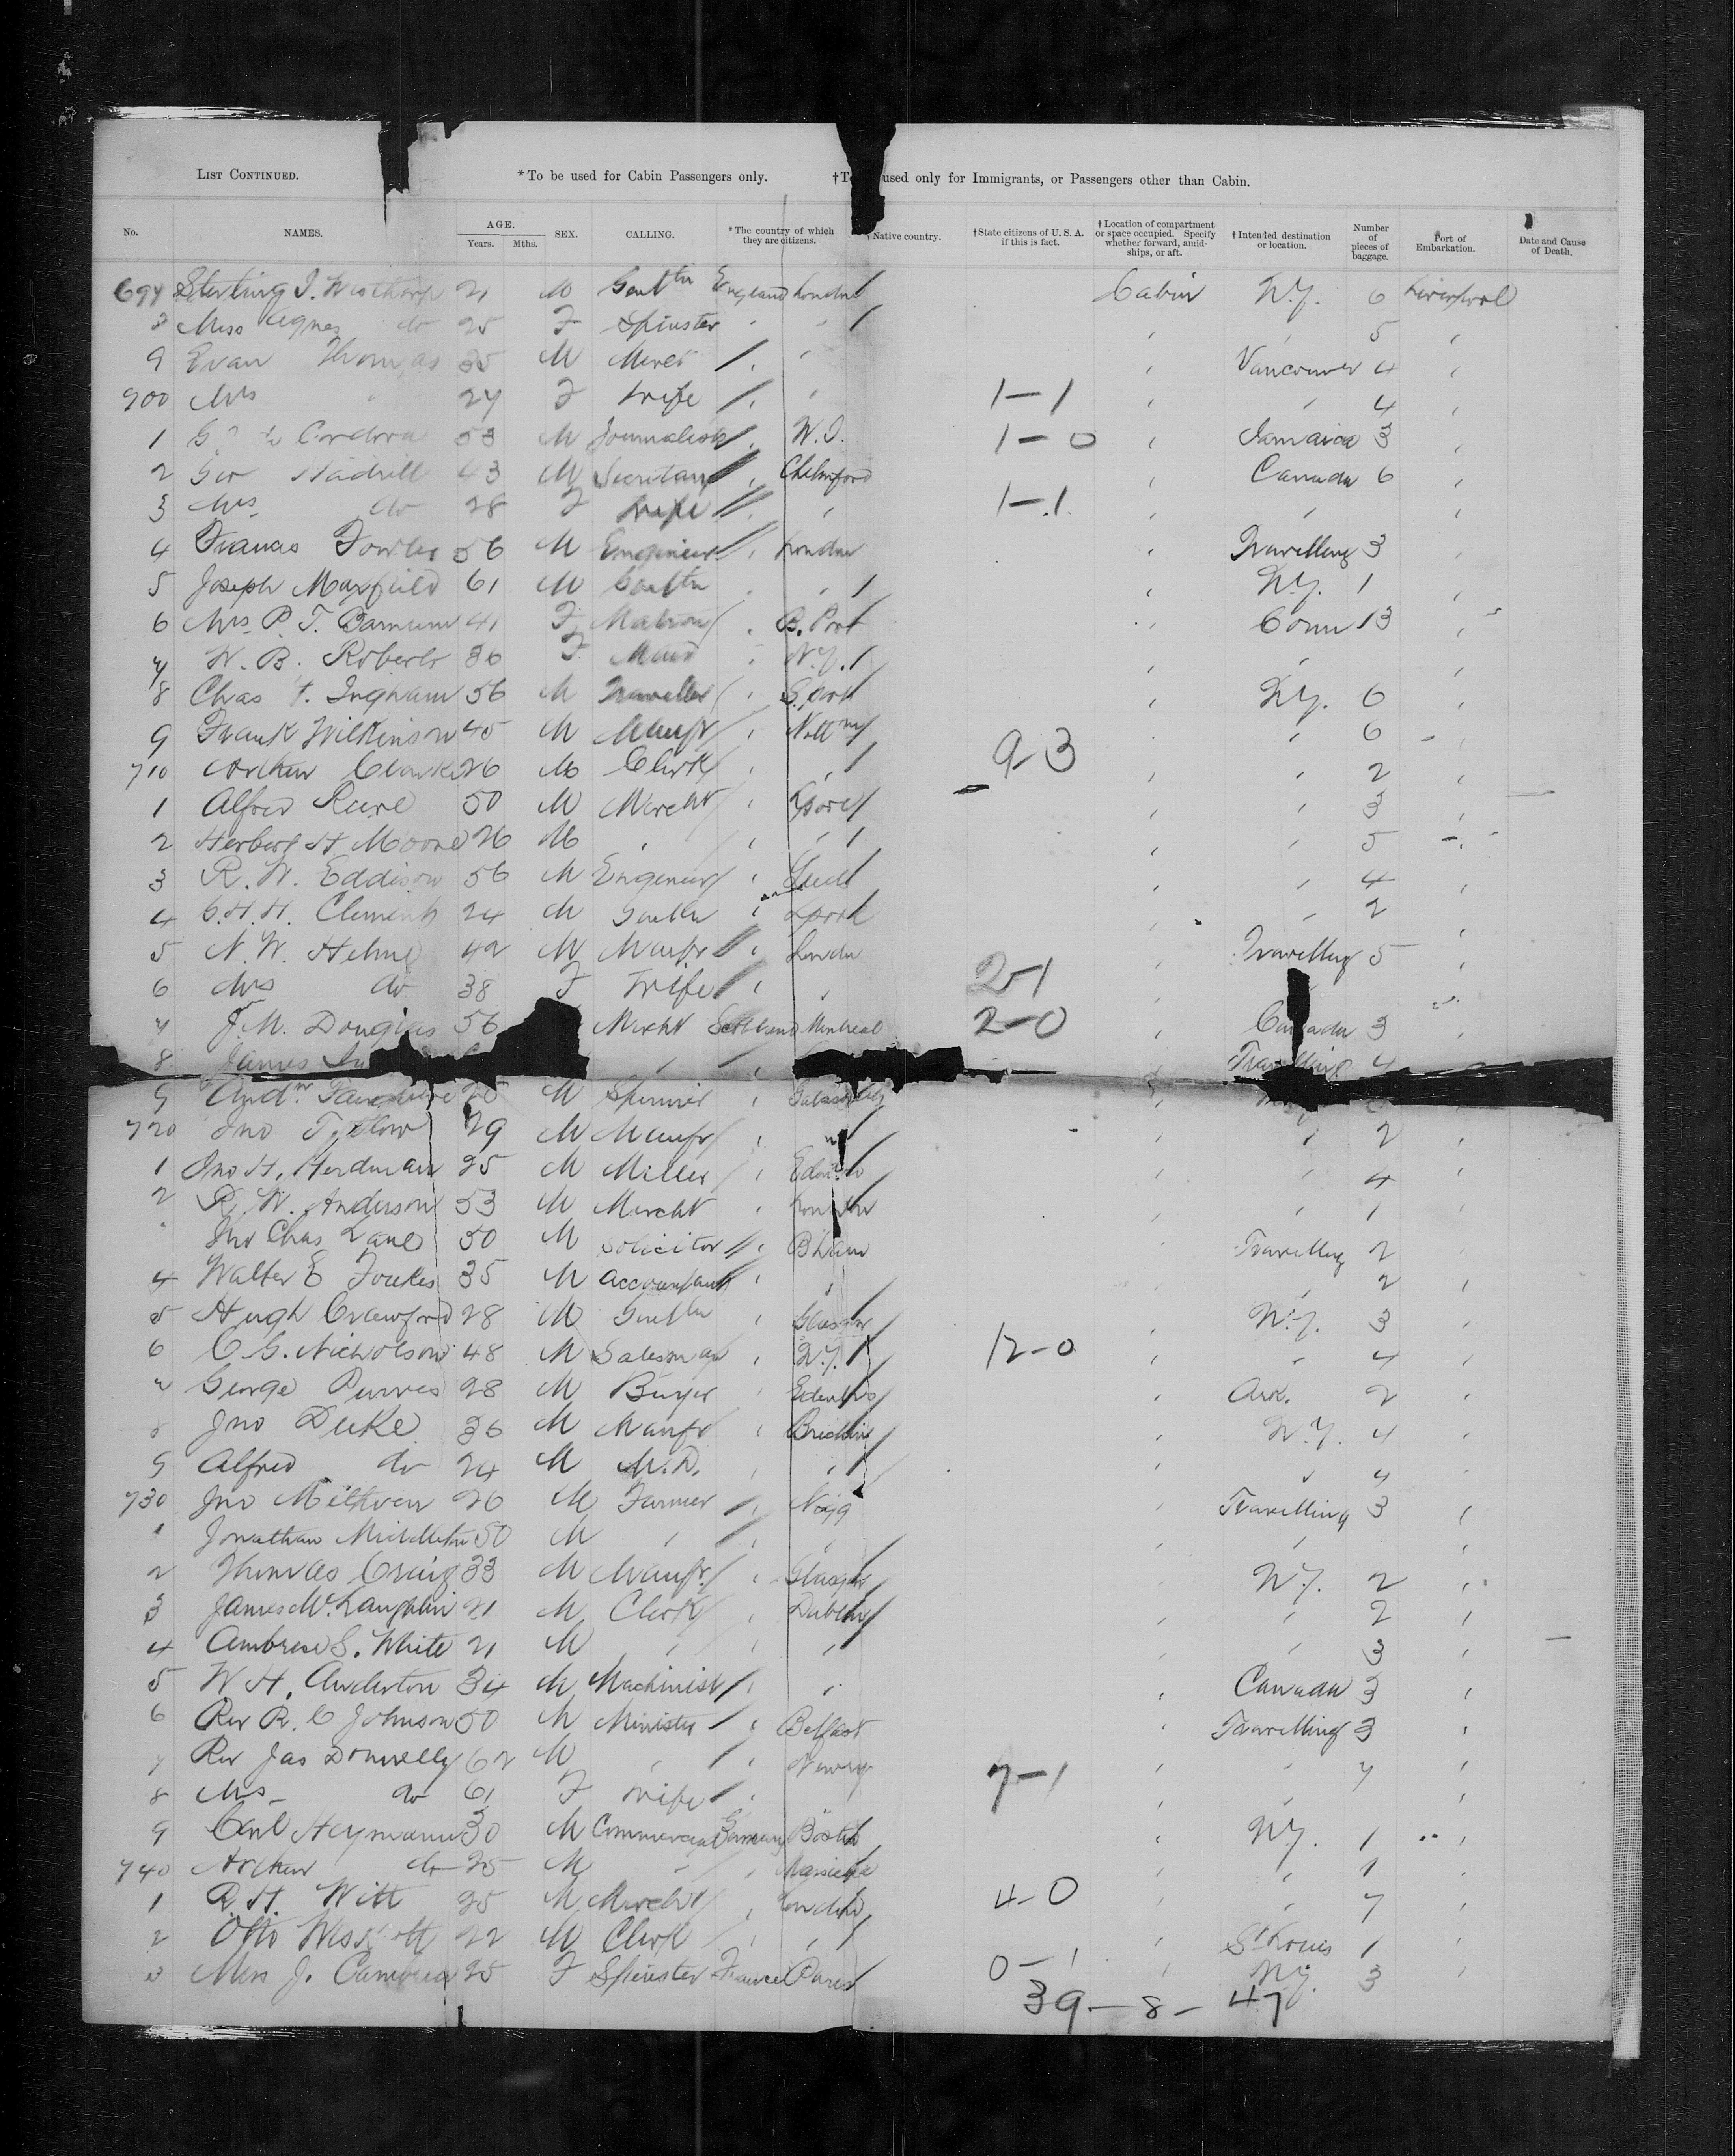 LIST CONTINUED. *To be used for Cabin Passengers only. used only for Immigrants, or Passengers other than Cabin.
No. NAMES. AGE. Years. Mths. SEX. CALLING. *The country of which they are citizens. Native country. †State citizens of U. S. A. if this is fact. †Location of compartment or space occupied. Specify whether forward, amidships, or aft. †Intended destination or location. Number of pieces of baggage. Port of Embarkation. Date and Cause of Death.
Sterling J. Winthorp 21 M England London Cabin N.Y. 6 Liverpool
Miss Agnes do 25 F Spinster " " " " 5 "
9 Evan Thomas 35 M " " " Vancouver 4 "
Mrs " 27 F Wife " " 1-1 " " 4 "
1 Cordova 53 M Journalist " W.I. 1-0 " Jamaica 3 "
2 Geo Hadrill 43 M Secretary " Chelmsford " Canada 6 "
3 Mrs do 28 F Wife " " 1-1 " " "
4 Francis Fowler 56 M Engineer " London " Travelling 3 "
5 Joseph Maxfield 61 M " " " N.Y. 1 "
6 Mrs P. T. Barnum 41 F Matron " B. Port " Conn 13 "
7 W. B. Roberts 36 F Maid " N.Y. " " "
8 Chas F. Ingham 56 M Traveller " " N.Y. 6 "
9 Frank Wilkinson 45 M Manfr " Nottm 9-3 " 6 "
710 Arthur Clarke 26 M Clerk " " " " 2 "
1 Alfred 50 M Mercht " " 3 "
2 Herbert H Moore 26 M " " " " " 5 "
3 R. W. Eddison 56 M Engineer " Leeds " " 4 "
4 C. H. H. Clement 24 M " Lpool " 2
5 N. W. Helme 42 M Manfr " London " Travelling 5 "
6 Mrs do 38 F Wife " " 2-1 "
7 J. M. Douglas 56 Mercht Scotland Montreal 2-0 " Canada 3 "
8 James " " Travelling 4
9 M Spinner "
720 Jno 29 M Manfr " " " " 2 "
1 Jno H. Herdman 25 M Miller " " " 4 "
2 R. W. Anderson 53 M Mercht " London " " 1 "
Jno Chas Lane 50 M Solicitor " Bham " Travelling 2 "
4 Walter E Foulkes 35 M Accountant " " " 2 "
5 Hugh Crawford 28 M " Glasgow " N.Y. 3 "
6 C G. Nicholson 48 M Salesman " N.Y. 12-0 " " 4 "
7 George Purves 28 M Buyer " " Ark. 2 "
8 Jno Duke 36 M Manfr " Brechin " N.Y. 4 "
9 Alfred do 24 M M.D. " " " " 4
730 Jno Methven 26 M Farmer " Nigg " Travelling 3 "
1 Jonathan Middleton 50 M " " " " "
2 Thomas Craig 33 M Manfr. " Glasgow " N.Y. 2 "
3 James McLaughlin 21 M Clerk " Dublin " " 2 "
4 Ambrose S. White 21 M " " " " " 3 "
5 W H. Anderton 34 M Machinist " " " Canada 3 "
6 Rev R. C Johnson 50 M Minister " Belfast " Travelling 3 "
7 Rev Jas Donnelly 62 M " " Newry 7-1 " " 4 "
8 Mrs do 61 F Wife " " " "
9 Carl Heymann 30 M Commercial Germany " N.Y. 1 "
740 Arthur do 25 M " " " " 1
1 R. H. Witt 25 M Mercht " London 4-0 " " 7 "
2 Otto 22 M Clerk " " " St Louis 1 "
3 Miss J. 25 F Spinster France Paris 0-1 " N.Y. 3 "
39-8-47